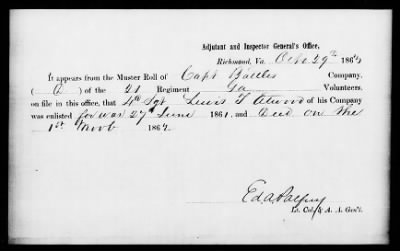 Adjutant and Inspector General's Office,
Richmond, Va. Oct. 29th 1864
It appears from the Muster Roll of Capt Company,
( C ) of the 21 Regiment Ga Volunteers,
on file in this office, that 4th Sgt Lewis T Atwood of his Company
was enlisted for war 27th June 1861, and Died on the
1st 1862.
Ed A Palfrey
Lt. Col. & A. A. Gen'l.